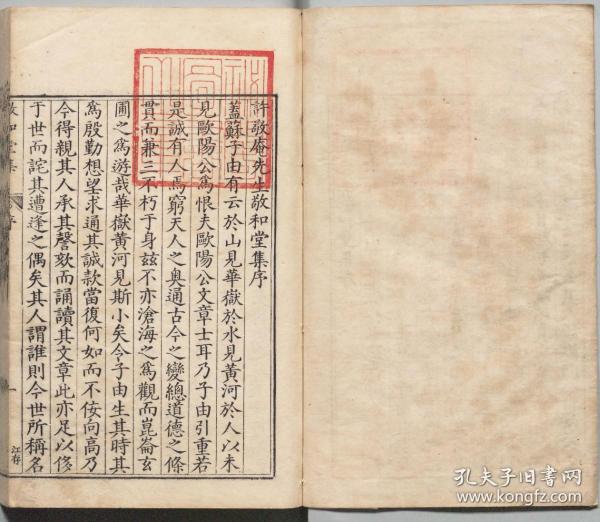 許敬庵先生敬和堂集序
蓋蘇子由有云於山見華嶽於水見黃河於人以未
見歐陽公爲恨夫歐陽公文章士耳乃子由引重若
是誠有人焉窮天人之奥通古今之變總道德之條
貫而兼三不朽于身玆不亦滄海之爲觀而崑崙玄
圃之爲游哉華嶽黃河見斯小矣令子由生其時其
爲殷勤想望求通其誠款當復何如而不佞向高乃
今得親其人承其謦欬而誦讀其文章此亦足以侈
于世而詫其遭逢之偶矣其人謂誰則今世所稱名
敬和堂集
序
一
江存
孔夫子旧书网
www.kongfz.com